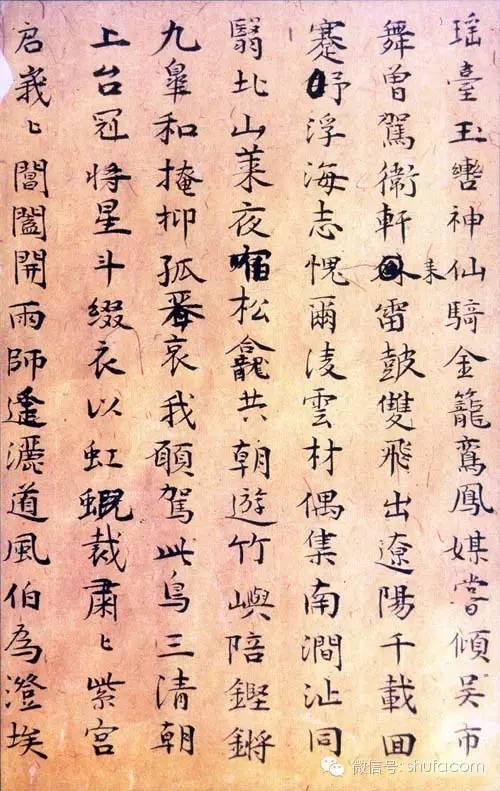 瑶臺玉轡神仙騎金籠鸞鳳媒嘗傾吳市
舞曾駕衛軒来雷鼓雙飛出遼陽千載回
蹇予浮海志愧爾凌雲材偶集南澗沚同
翳北山萊夜宿松龕共朝遊竹嶼陪鏗鏘
九皋和掩抑孤哀我願駕此鳥三清朝
上台冠将星斗綴衣以虹蜺裁肅〻紫宮
启峩〻閶闔開雨師遙灑道風伯為澄埃
微信号: shufacom